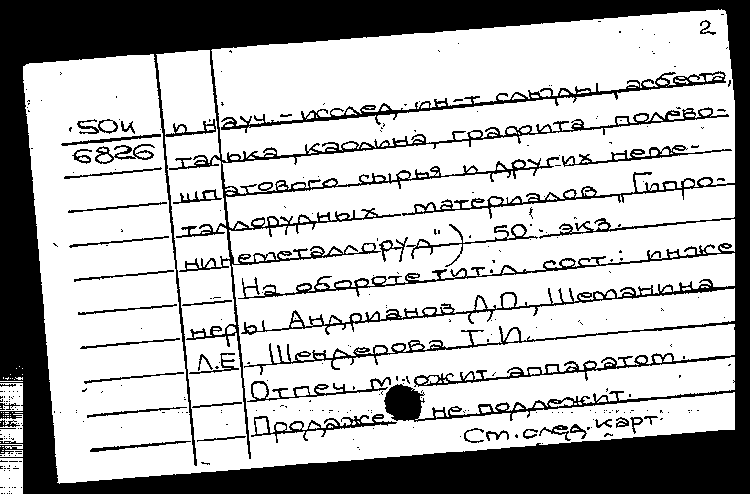 2
50и и науч.-исслед. ин-т слюды, асбеста,
6826 талька, каолина, графита, полево-
шпатового сырья и других неме-
таллорудных материалов "Гипро-
нинеметаллоруд"). 50 экз.
На обороте тит. л. сост.: инже
неры Андрианов Д.П., Шеманина
Л.Е., Шендерова Т.И.
Отпеч. множит. аппаратом.
Продаже не подлежит.
См. след. карт.